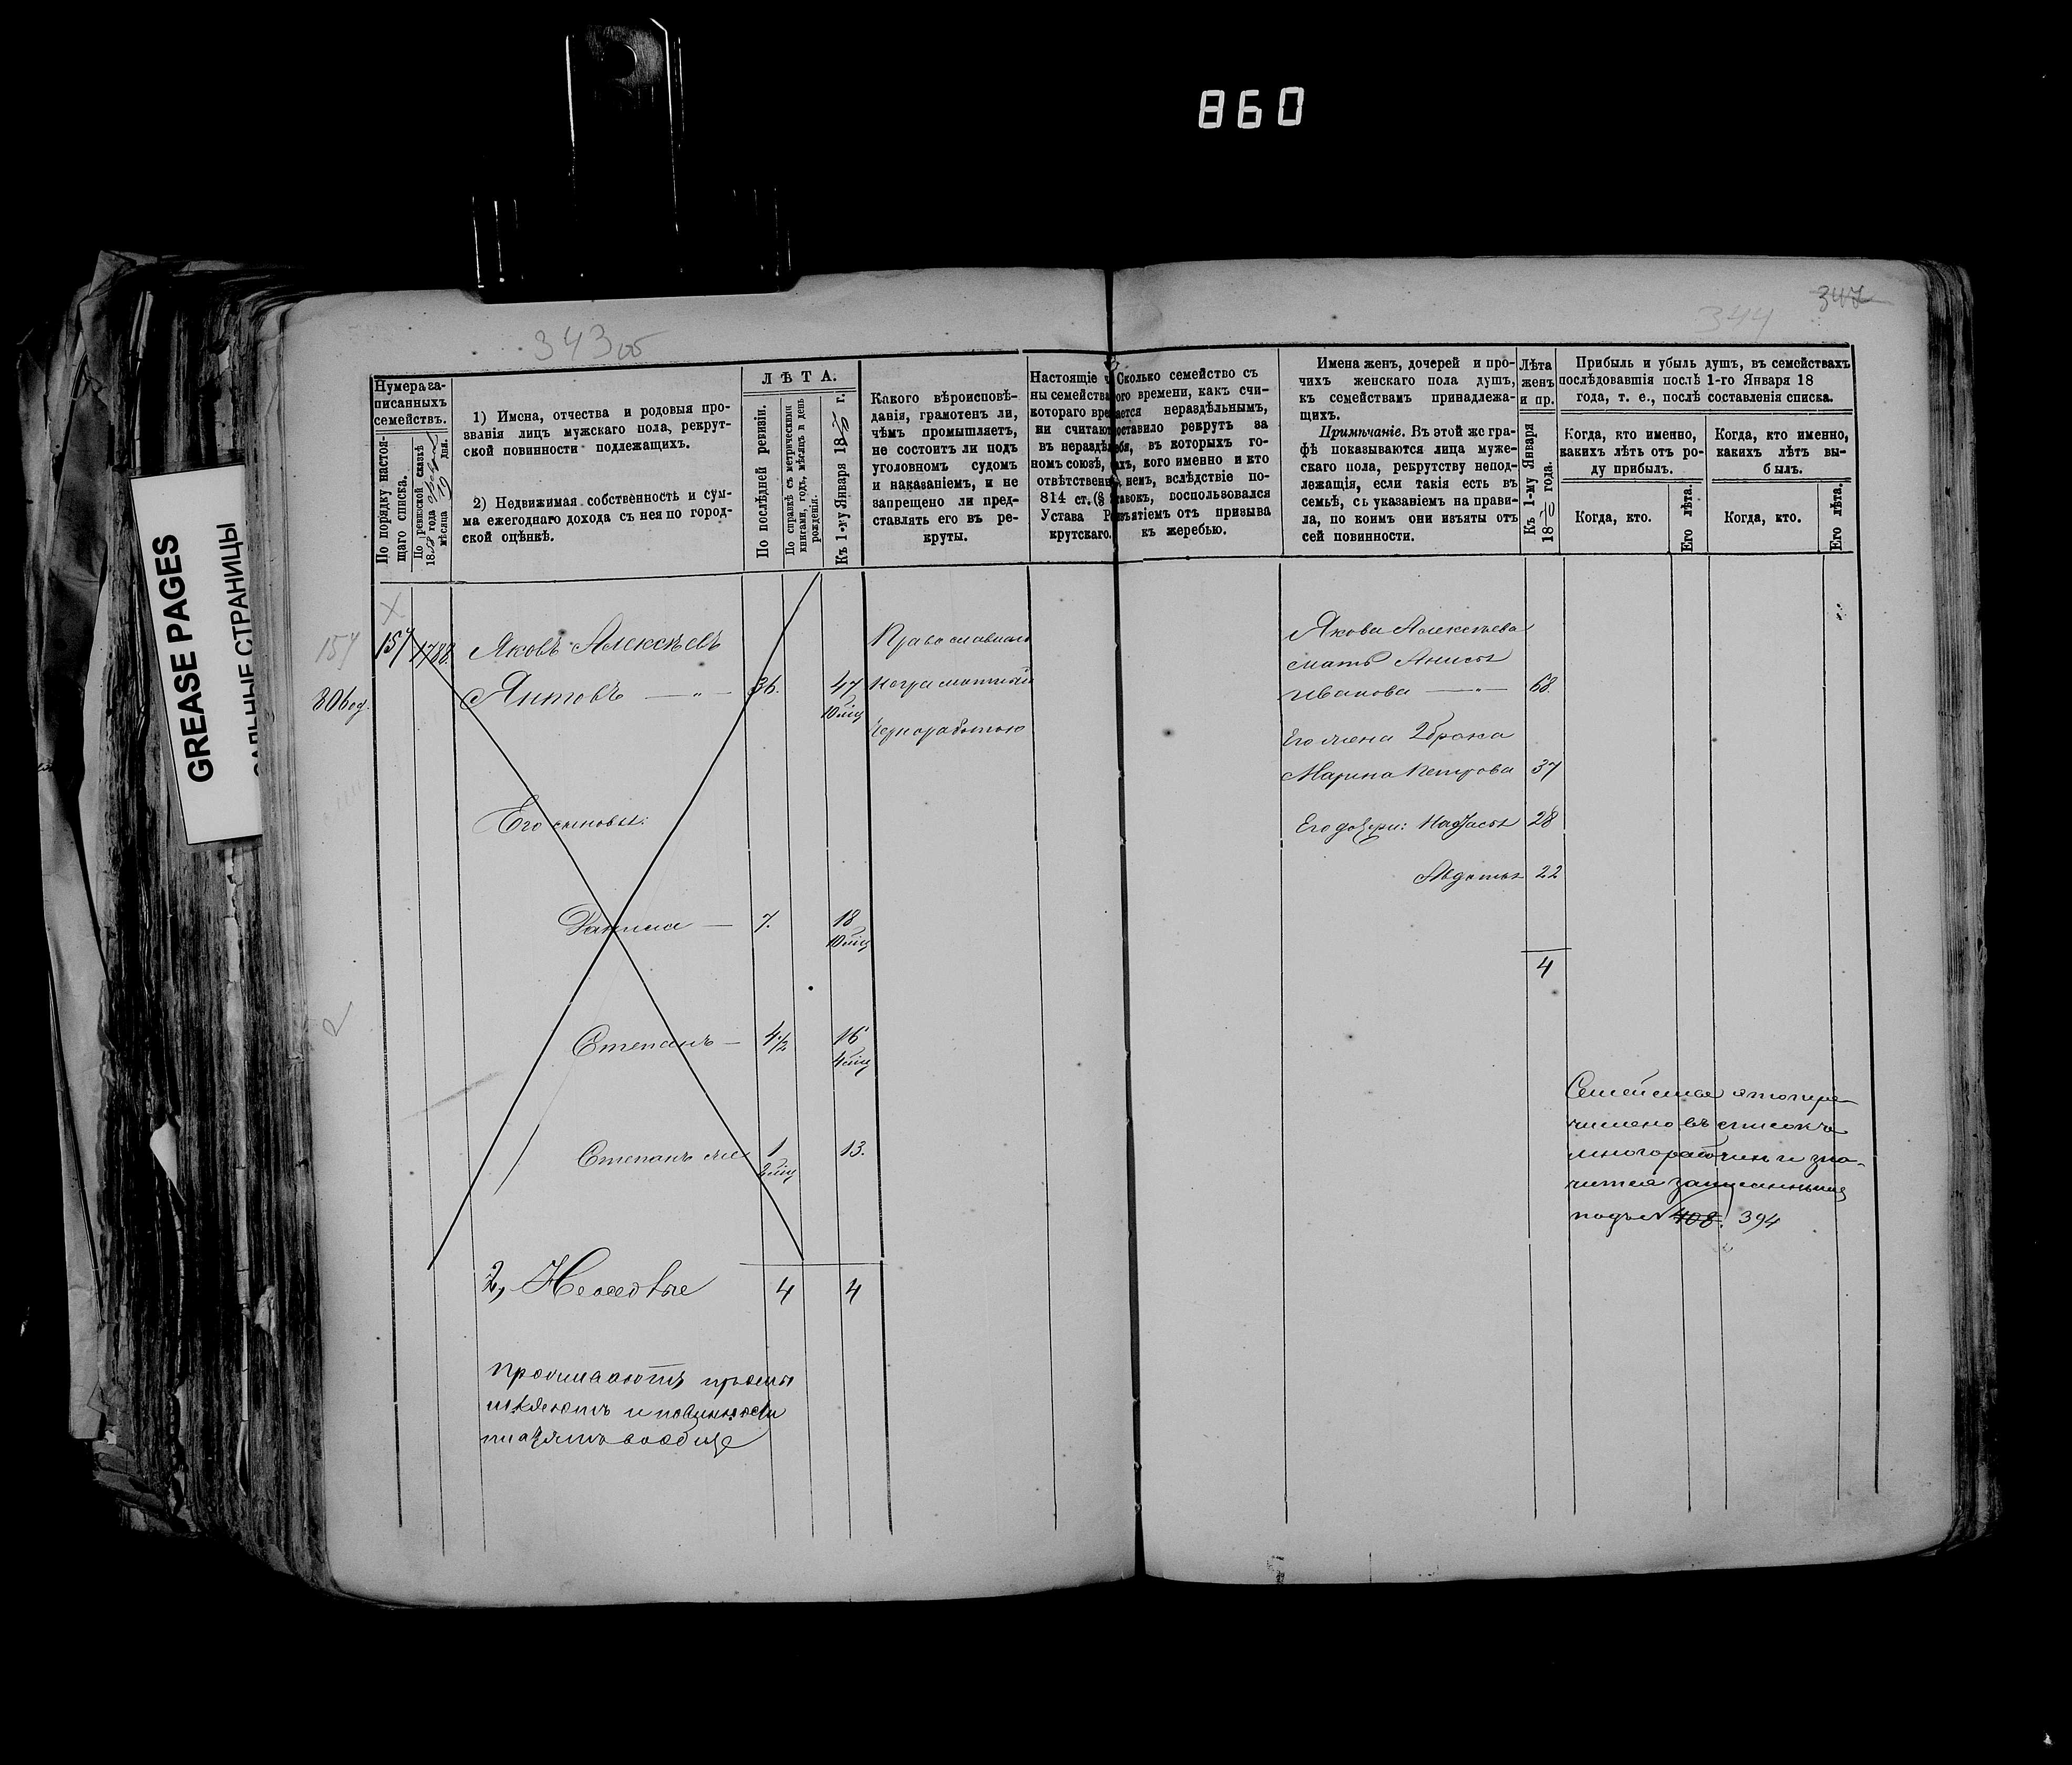 860
GREASE PAGES
САЛЬНЫЕ СТРАНИЦЫ
343 об
344
347
Нумера за-
писанныхъ
семействъ.
По порядку настоя-
щаго списка.
По ревизской сказкѣ
1858 года
мѣсяца 19 дня.
1) Имена, отчества и родовыя про-
званія лицъ мужскаго пола, рекрут-
ской повинности подлежащихъ.
2) Недвижимая собственность и сум-
ма ежегоднаго дохода съ нея по город-
ской оцѣнкѣ.
ЛѢТА.
По послѣдней ревизіи.
По справкѣ съ метрическими
книгами, годъ, мѣсяцъ и день
рожденія.
Къ 1-му Января 1870 г.
Какого вѣроисповѣ-
данія, грамотенъ ли,
чѣмъ промышляетъ,
не состоитъ ли подъ
уголовнымъ судомъ
и наказаніемъ, и не
запрещено ли пред-
ставлять его въ ре-
круты.
Настоящіе ч
ны семейства
котораго вре
ни считают
въ нераздѣ
номъ союзѣ,
отвѣтственн
814 ст. (§
Устава Р
крутскаго.
Сколько семейство съ
ого времени, какъ счи-
ается нераздѣльнымъ,
оставило рекрутъ за
ебя, въ которыхъ го-
ахъ, кого именно и кто
немъ, вслѣдствіе по-
тавокъ, воспользовался
изъятіемъ отъ призыва
къ жеребью.
Имена женъ, дочерей и про-
чихъ женскаго пола душъ,
къ семействамъ принадлежа-
щихъ.
Примѣчаніе. Въ этой же гра-
фѣ показываются лица муже-
скаго пола, рекрутству непод-
лежащія, если такія есть въ
семьѣ, съ указаніемъ на прави-
ла, по коимъ они изъяты отъ
сей повинности.
Лѣта
женъ
и пр.
Къ 1-му Января
1870 года.
Прибыль и убыль душъ, въ семействахъ
послѣдовавшія послѣ 1-го Января 18
года, т. е., послѣ составленія списка.
Когда, кто именно,
какихъ лѣтъ отъ ро-
ду прибылъ.
Когда, кто именно,
какихъ лѣтъ вы-
былъ.
Когда, кто.
Его лѣта.
Когда, кто.
Его лѣта.
157 157 1788. Яковъ Алексѣевъ
Антовъ — " — 36. 47
10 мѣц
Его сыновья:
7. 18
10 мѣц
Степанъ — 4½ 16
4 мѣц
Степанъ же 1 13.
2 мѣц
2, 4 4
и повинности
платятъ вообще
Православнаго
неграмотный
Чернорабочею
Якова Алексѣева
мать Анисья
Иванова — " — 68.
Его жена 2 брака
Марина Петрова 37
Его дочери: 28
Авдотья 22
4
Семейство это пере-
числено въ списокъ
многорабочихъ и зна-
чится записаннымъ
подъ № 408. 394